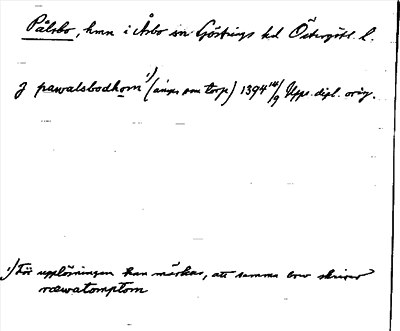 Pålsbo, hmn i Åsbo sn Göstrings hd Östergötl. l.
j pawalsbodhom ¹) (anges som torp) 1394 14/9 Upps. dipl. orig.
¹) För upplösningen kan märkas, att samma brev skriver
ræwatomptom